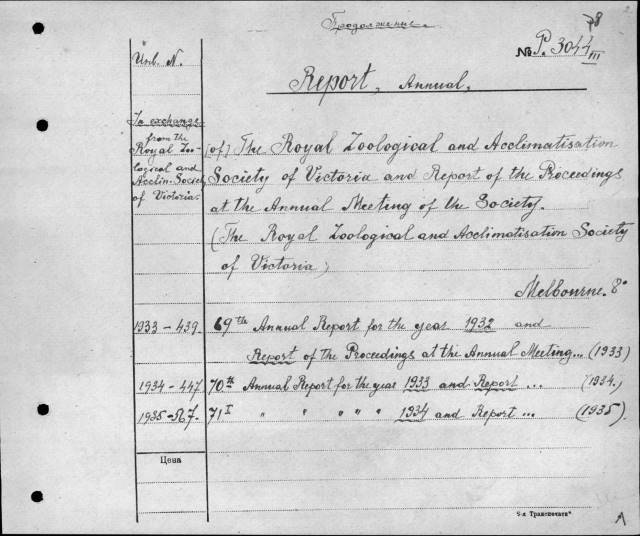 Продолжение.
78
№ P. 3044 III
Инв. N.
Report, Annual,
In exchange from the Royal Zoo-logical and Acclim. Society of Victoria.
[of] The Royal Zoological and Acclimatisation
Society of Victoria and Report of the Proceedings
at the Annual Meeting of the Society.
(The Royal Zoological and Acclimatisation Society
of Victoria)
Melbourne. 8°
1933 - 439. 69th Annual Report for the year 1932 and
Report of the Proceedings at the Annual Meeting... (1933)
1934 - 447 70th Annual Report for the year 1933 and Report ... (1934.
1935 - 567. 71 " " " " " 1934 and Report ... (1935).
Цена
9-я Транспечати"